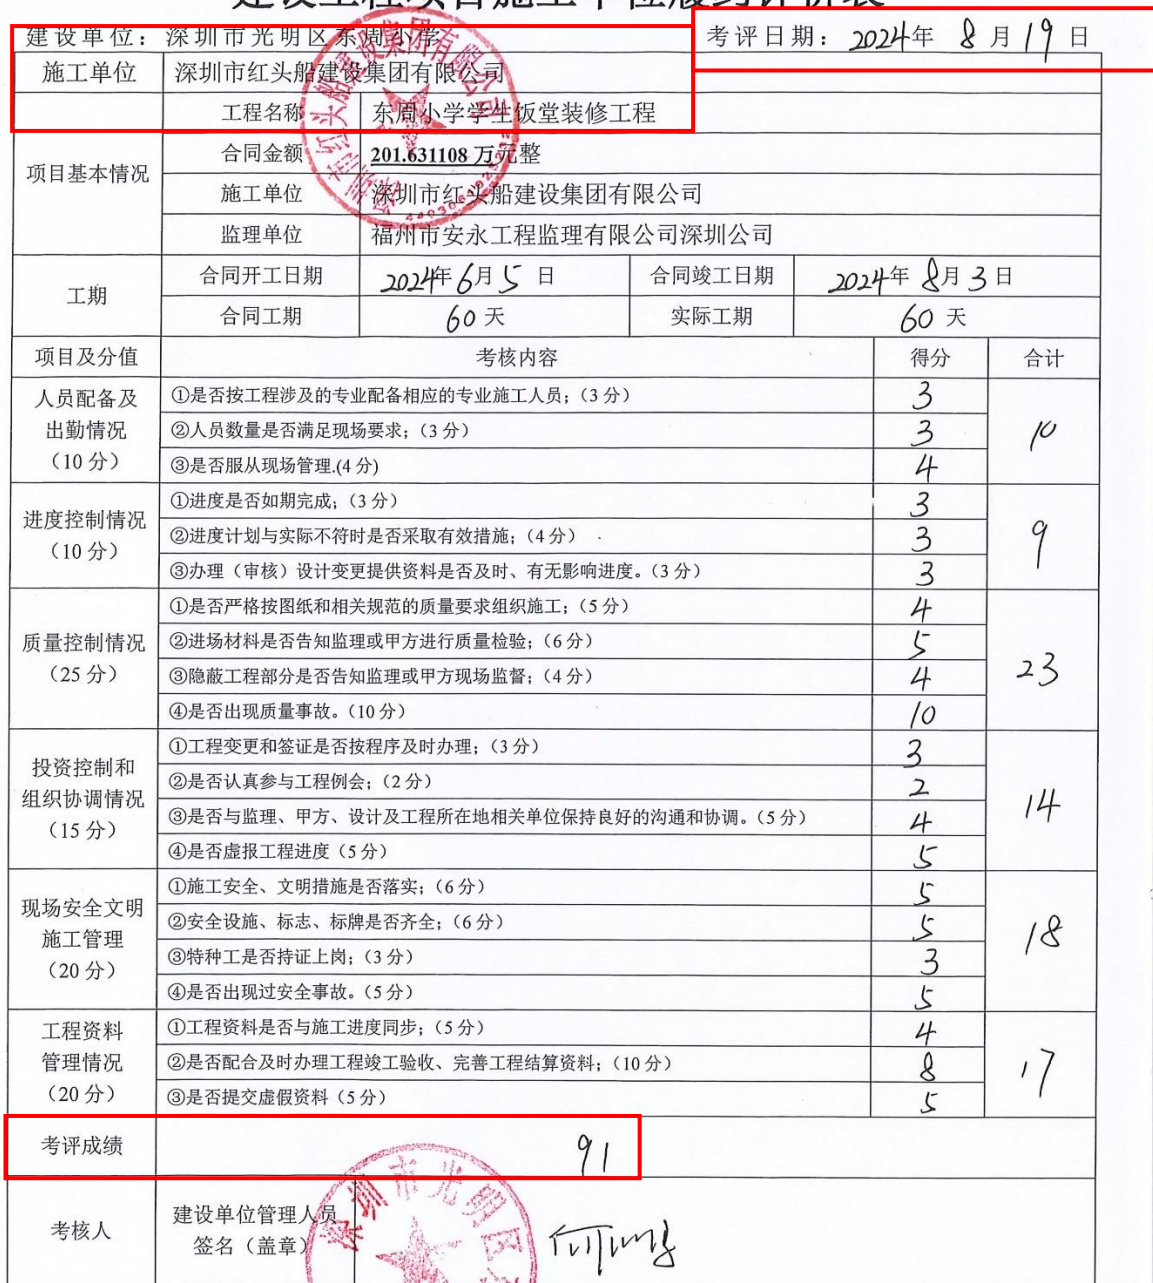 建设工程项目施工单位履约评价表
建设单位：深圳市光明区东周小学 考评日期：2024年 8月19日
施工单位 深圳市红头船建设集团有限公司
项目基本情况
工程名称 东周小学学生饭堂装修工程
合同金额 201.631108 万元整
施工单位 深圳市红头船建设集团有限公司
监理单位 福州市安永工程监理有限公司深圳公司
工期
合同开工日期 2024年6月5日 合同竣工日期 2024年8月3日
合同工期 60天 实际工期 60天
项目及分值 考核内容 得分 合计
人员配备及
出勤情况
（10 分）
①是否按工程涉及的专业配备相应的专业施工人员；（3 分） 3
②人员数量是否满足现场要求；（3 分） 3
③是否服从现场管理.(4 分) 4
10
进度控制情况
（10 分）
①进度是否如期完成；（3 分） 3
②进度计划与实际不符时是否采取有效措施；（4 分） 3
③办理（审核）设计变更提供资料是否及时、有无影响进度。（3 分） 3
9
质量控制情况
（25 分）
①是否严格按图纸和相关规范的质量要求组织施工；（5 分） 4
②进场材料是否告知监理或甲方进行质量检验；（6 分） 5
③隐蔽工程部分是否告知监理或甲方现场监督；（4 分） 4
④是否出现质量事故。（10 分） 10
23
投资控制和
组织协调情况
（15 分）
①工程变更和签证是否按程序及时办理；（3 分） 3
②是否认真参与工程例会；（2 分） 2
③是否与监理、甲方、设计及工程所在地相关单位保持良好的沟通和协调。（5 分） 4
④是否虚报工程进度（5 分） 5
14
现场安全文明
施工管理
（20 分）
①施工安全、文明措施是否落实；（6 分） 5
②安全设施、标志、标牌是否齐全；（6 分） 5
③特种工是否持证上岗；（3 分） 3
④是否出现过安全事故。（5 分） 5
18
工程资料
管理情况
（20 分）
①工程资料是否与施工进度同步；（5 分） 4
②是否配合及时办理工程竣工验收、完善工程结算资料；（10 分） 8
③是否提交虚假资料（5 分） 5
17
考评成绩 91
考核人
建设单位管理人员
签名（盖章）
深圳市光明区